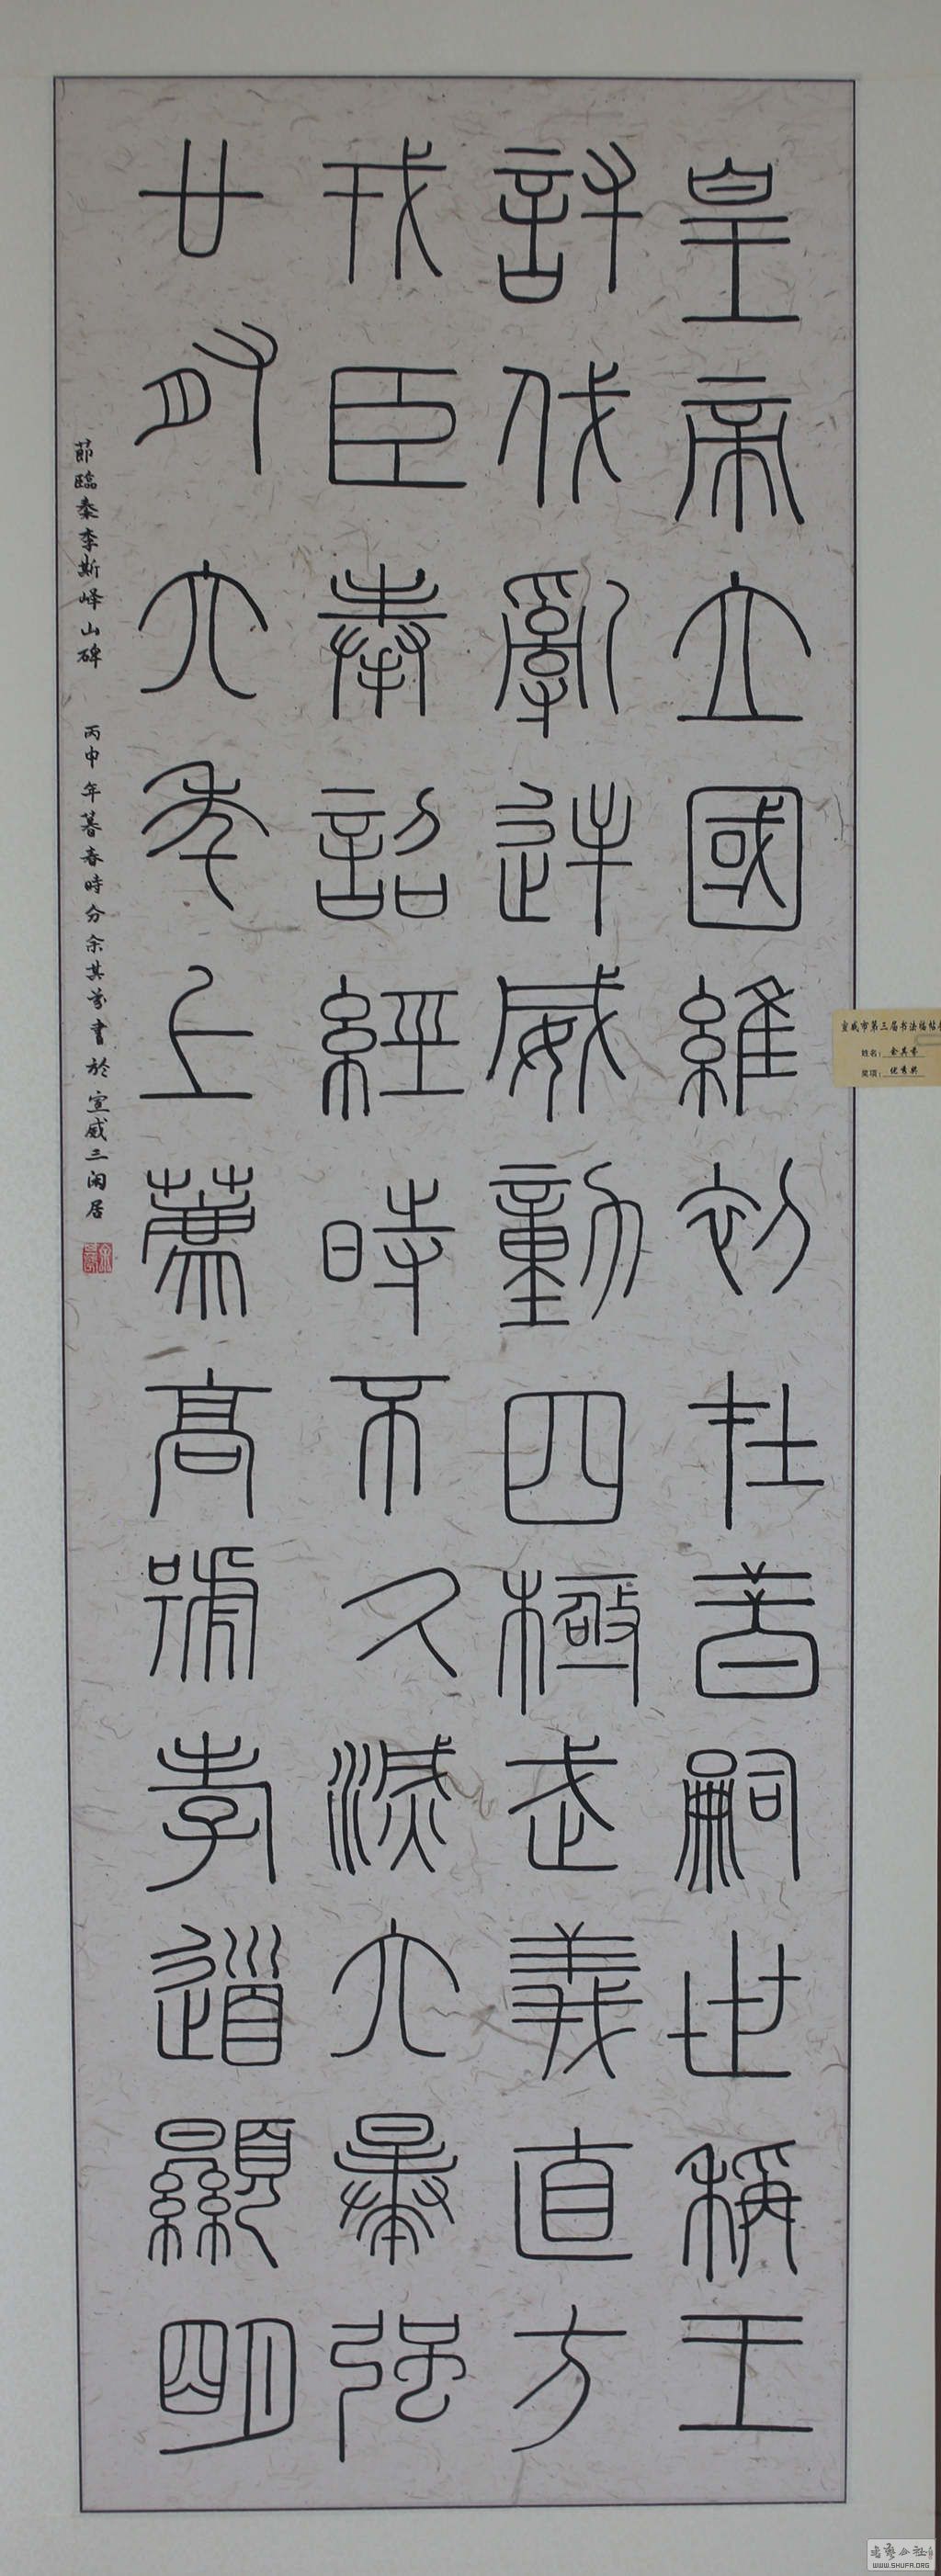 皇帝立國維初在昔嗣世稱王
討伐亂逆威動四極武義直方
戎臣奉詔經時不久滅六暴強
廿有六年上薦高號孝道顯明
節臨秦李斯峄山碑 丙申年暮春時分余其芬書於宣威三闲居
宣威市第三届书法临帖
姓名:
奖项: 优秀奖
WWW.SHUFA.ORG